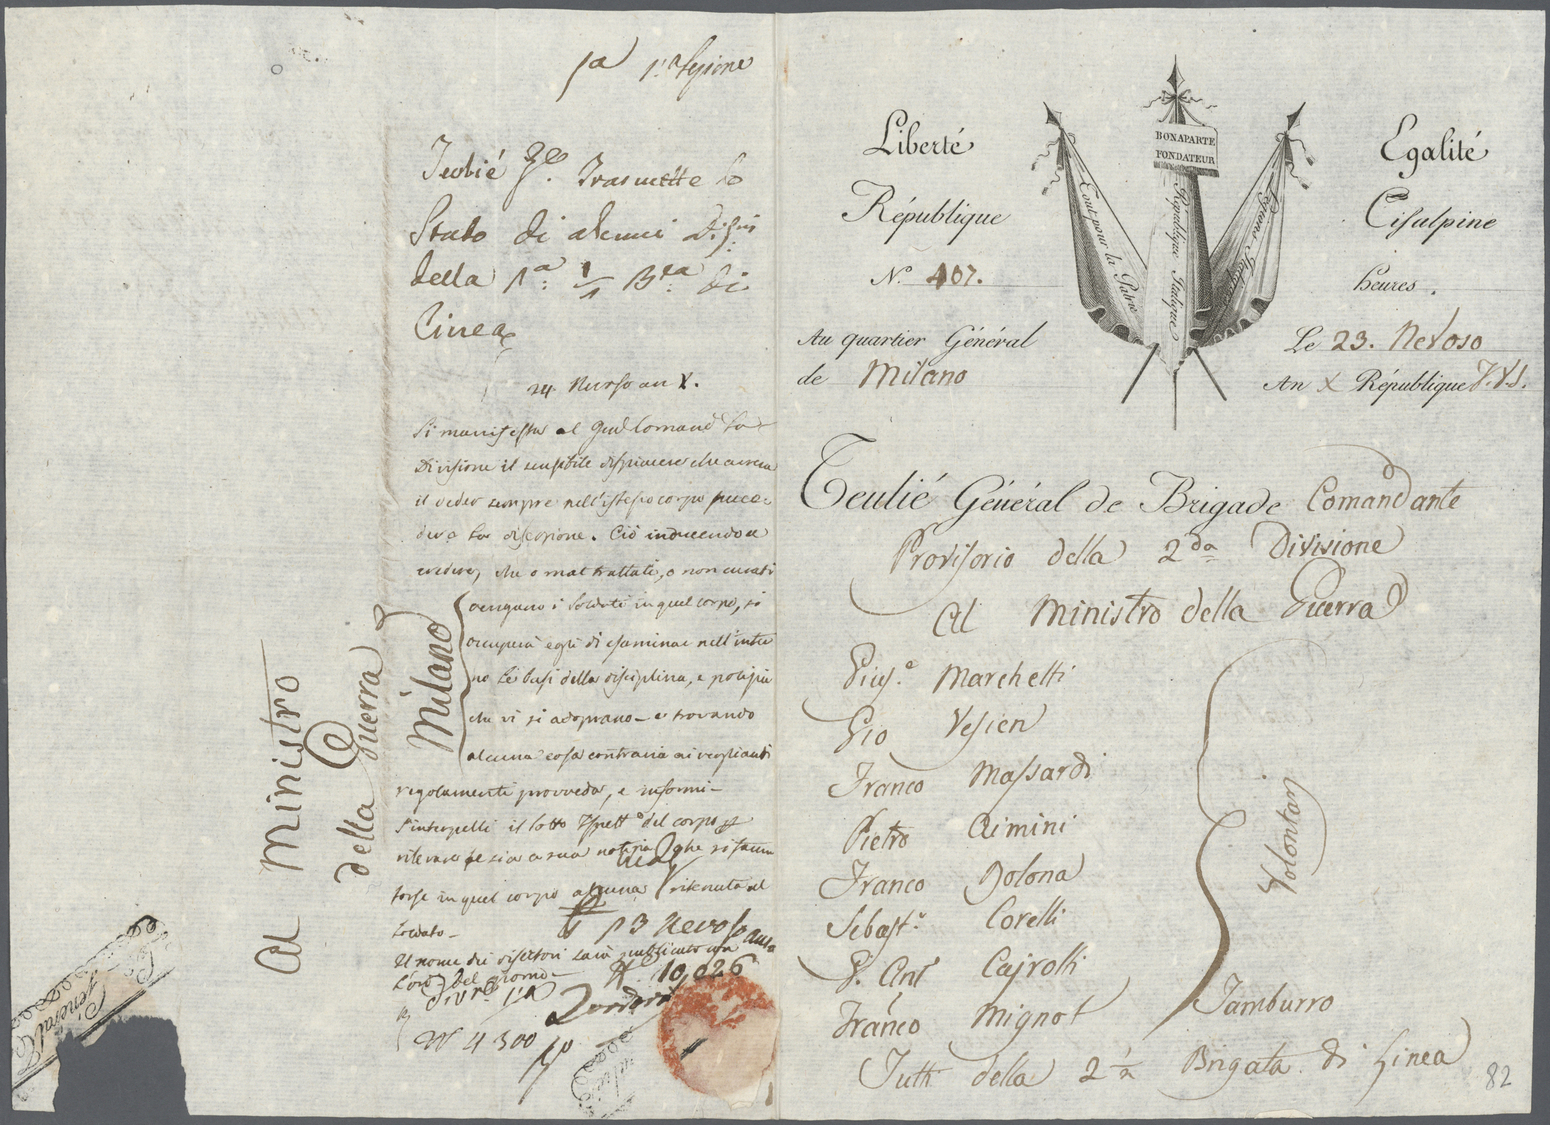 1ª 1.ª Sezione
Teulié G.le Trasmette lo
Stato di alcuni Diser
della 1ª ½ B.ta di
Linea
24. Nevoso an X.
Si manifesta al Gen.l Comand. la
Divisione il sensibile dispiacere che arreca
il veder sempre nell'istesso corpo succe-
dere la diserzione. Ciò inducendo a
credere, che o mal trattati, o non curati
vengano i soldati in quel corpo, si
occuperà egli di esaminar nell'inter
no le basi della disciplina, e polizia
che vi si adoprano e trovando
alcuna cosa contraria ai veglianti
regolamenti provveda, e informi
S'interpelli il Sotto Ispett.e del corpo
forse in quel corpo alcuna ritenuta al
soldato.
Il nome dei disertori sarà pubblicato con
l'ord. del giorno
Div.e 1.ª
N 4300
13 Nevoso
N. 10,026
Al Ministro
della Guerra
Milano
Général
Liberté
Egalité
BONAPARTE
FONDATEUR
Tout pour la Patrie
République Italique
Légions Italiques
République
Cisalpine
N.º 407.
heures .
Au quartier Général
de Milano
Le 23. Nevoso
An X République V.S.
Teulié Général de Brigade Comandante
Provisorio della 2da Divisione
Al Ministro della Guerra
Gius.e Marchetti
Gio Vesien
Franco Massardi
Pietro Rimini
Franco Dolona
Sebast.o Corelli
G. Ant Cajrolli
Franco Mignot
Volontarj
Tamburro
Tutti della 2 ½ Brigata di Linea
82